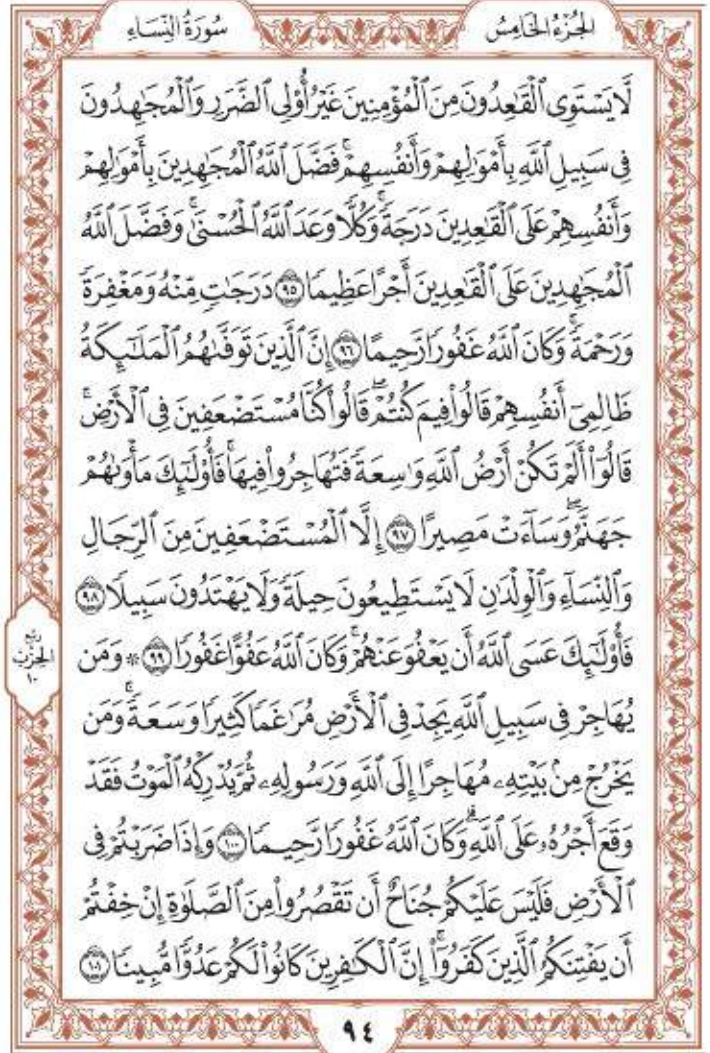 الجُزْءُ الخَامِسُ
سُورَةُ النِّسَاءِ
لَّا يَسْتَوِي ٱلْقَٰعِدُونَ مِنَ ٱلْمُؤْمِنِينَ غَيْرُ أُو۟لِي ٱلضَّرَرِ وَٱلْمُجَٰهِدُونَ
فِي سَبِيلِ ٱللَّهِ بِأَمْوَٰلِهِمْ وَأَنفُسِهِمْۚ فَضَّلَ ٱللَّهُ ٱلْمُجَٰهِدِينَ بِأَمْوَٰلِهِمْ
وَأَنفُسِهِمْ عَلَى ٱلْقَٰعِدِينَ دَرَجَةًۚ وَكُلًّا وَعَدَ ٱللَّهُ ٱلْحُسْنَىٰۚ وَفَضَّلَ ٱللَّهُ
ٱلْمُجَٰهِدِينَ عَلَى ٱلْقَٰعِدِينَ أَجْرًا عَظِيمًا ٩٥ دَرَجَٰتٍ مِّنْهُ وَمَغْفِرَةً
وَرَحْمَةًۚ وَكَانَ ٱللَّهُ غَفُورًا رَّحِيمًا ٩٦ إِنَّ ٱلَّذِينَ تَوَفَّىٰهُمُ ٱلْمَلَٰٓئِكَةُ
ظَالِمِيٓ أَنفُسِهِمْ قَالُوا۟ فِيمَ كُنتُمْۖ قَالُوا۟ كُنَّا مُسْتَضْعَفِينَ فِي ٱلْأَرْضِۚ
قَالُوٓا۟ أَلَمْ تَكُنْ أَرْضُ ٱللَّهِ وَٰسِعَةً فَتُهَاجِرُوا۟ فِيهَاۚ فَأُو۟لَٰٓئِكَ مَأْوَىٰهُمْ
جَهَنَّمُۖ وَسَآءَتْ مَصِيرًا ٩٧ إِلَّا ٱلْمُسْتَضْعَفِينَ مِنَ ٱلرِّجَالِ
وَٱلنِّسَآءِ وَٱلْوِلْدَٰنِ لَا يَسْتَطِيعُونَ حِيلَةً وَلَا يَهْتَدُونَ سَبِيلًا ٩٨
فَأُو۟لَٰٓئِكَ عَسَى ٱللَّهُ أَن يَعْفُوَ عَنْهُمْۚ وَكَانَ ٱللَّهُ عَفُوًّا غَفُورًا ٩٩ ۞ وَمَن
يُهَاجِرْ فِي سَبِيلِ ٱللَّهِ يَجِدْ فِي ٱلْأَرْضِ مُرَٰغَمًا كَثِيرًا وَسَعَةًۚ وَمَن
يَخْرُجْ مِنۢ بَيْتِهِۦ مُهَاجِرًا إِلَى ٱللَّهِ وَرَسُولِهِۦ ثُمَّ يُدْرِكْهُ ٱلْمَوْتُ فَقَدْ
وَقَعَ أَجْرُهُۥ عَلَى ٱللَّهِۗ وَكَانَ ٱللَّهُ غَفُورًا رَّحِيمًا ١٠٠ وَإِذَا ضَرَبْتُمْ فِي
ٱلْأَرْضِ فَلَيْسَ عَلَيْكُمْ جُنَاحٌ أَن تَقْصُرُوا۟ مِنَ ٱلصَّلَوٰةِ إِنْ خِفْتُمْ
أَن يَفْتِنَكُمُ ٱلَّذِينَ كَفَرُوٓا۟ۚ إِنَّ ٱلْكَٰفِرِينَ كَانُوا۟ لَكُمْ عَدُوًّا مُّبِينًا ١٠١
رُبْع
الحِزْبِ
١٠
٩٤